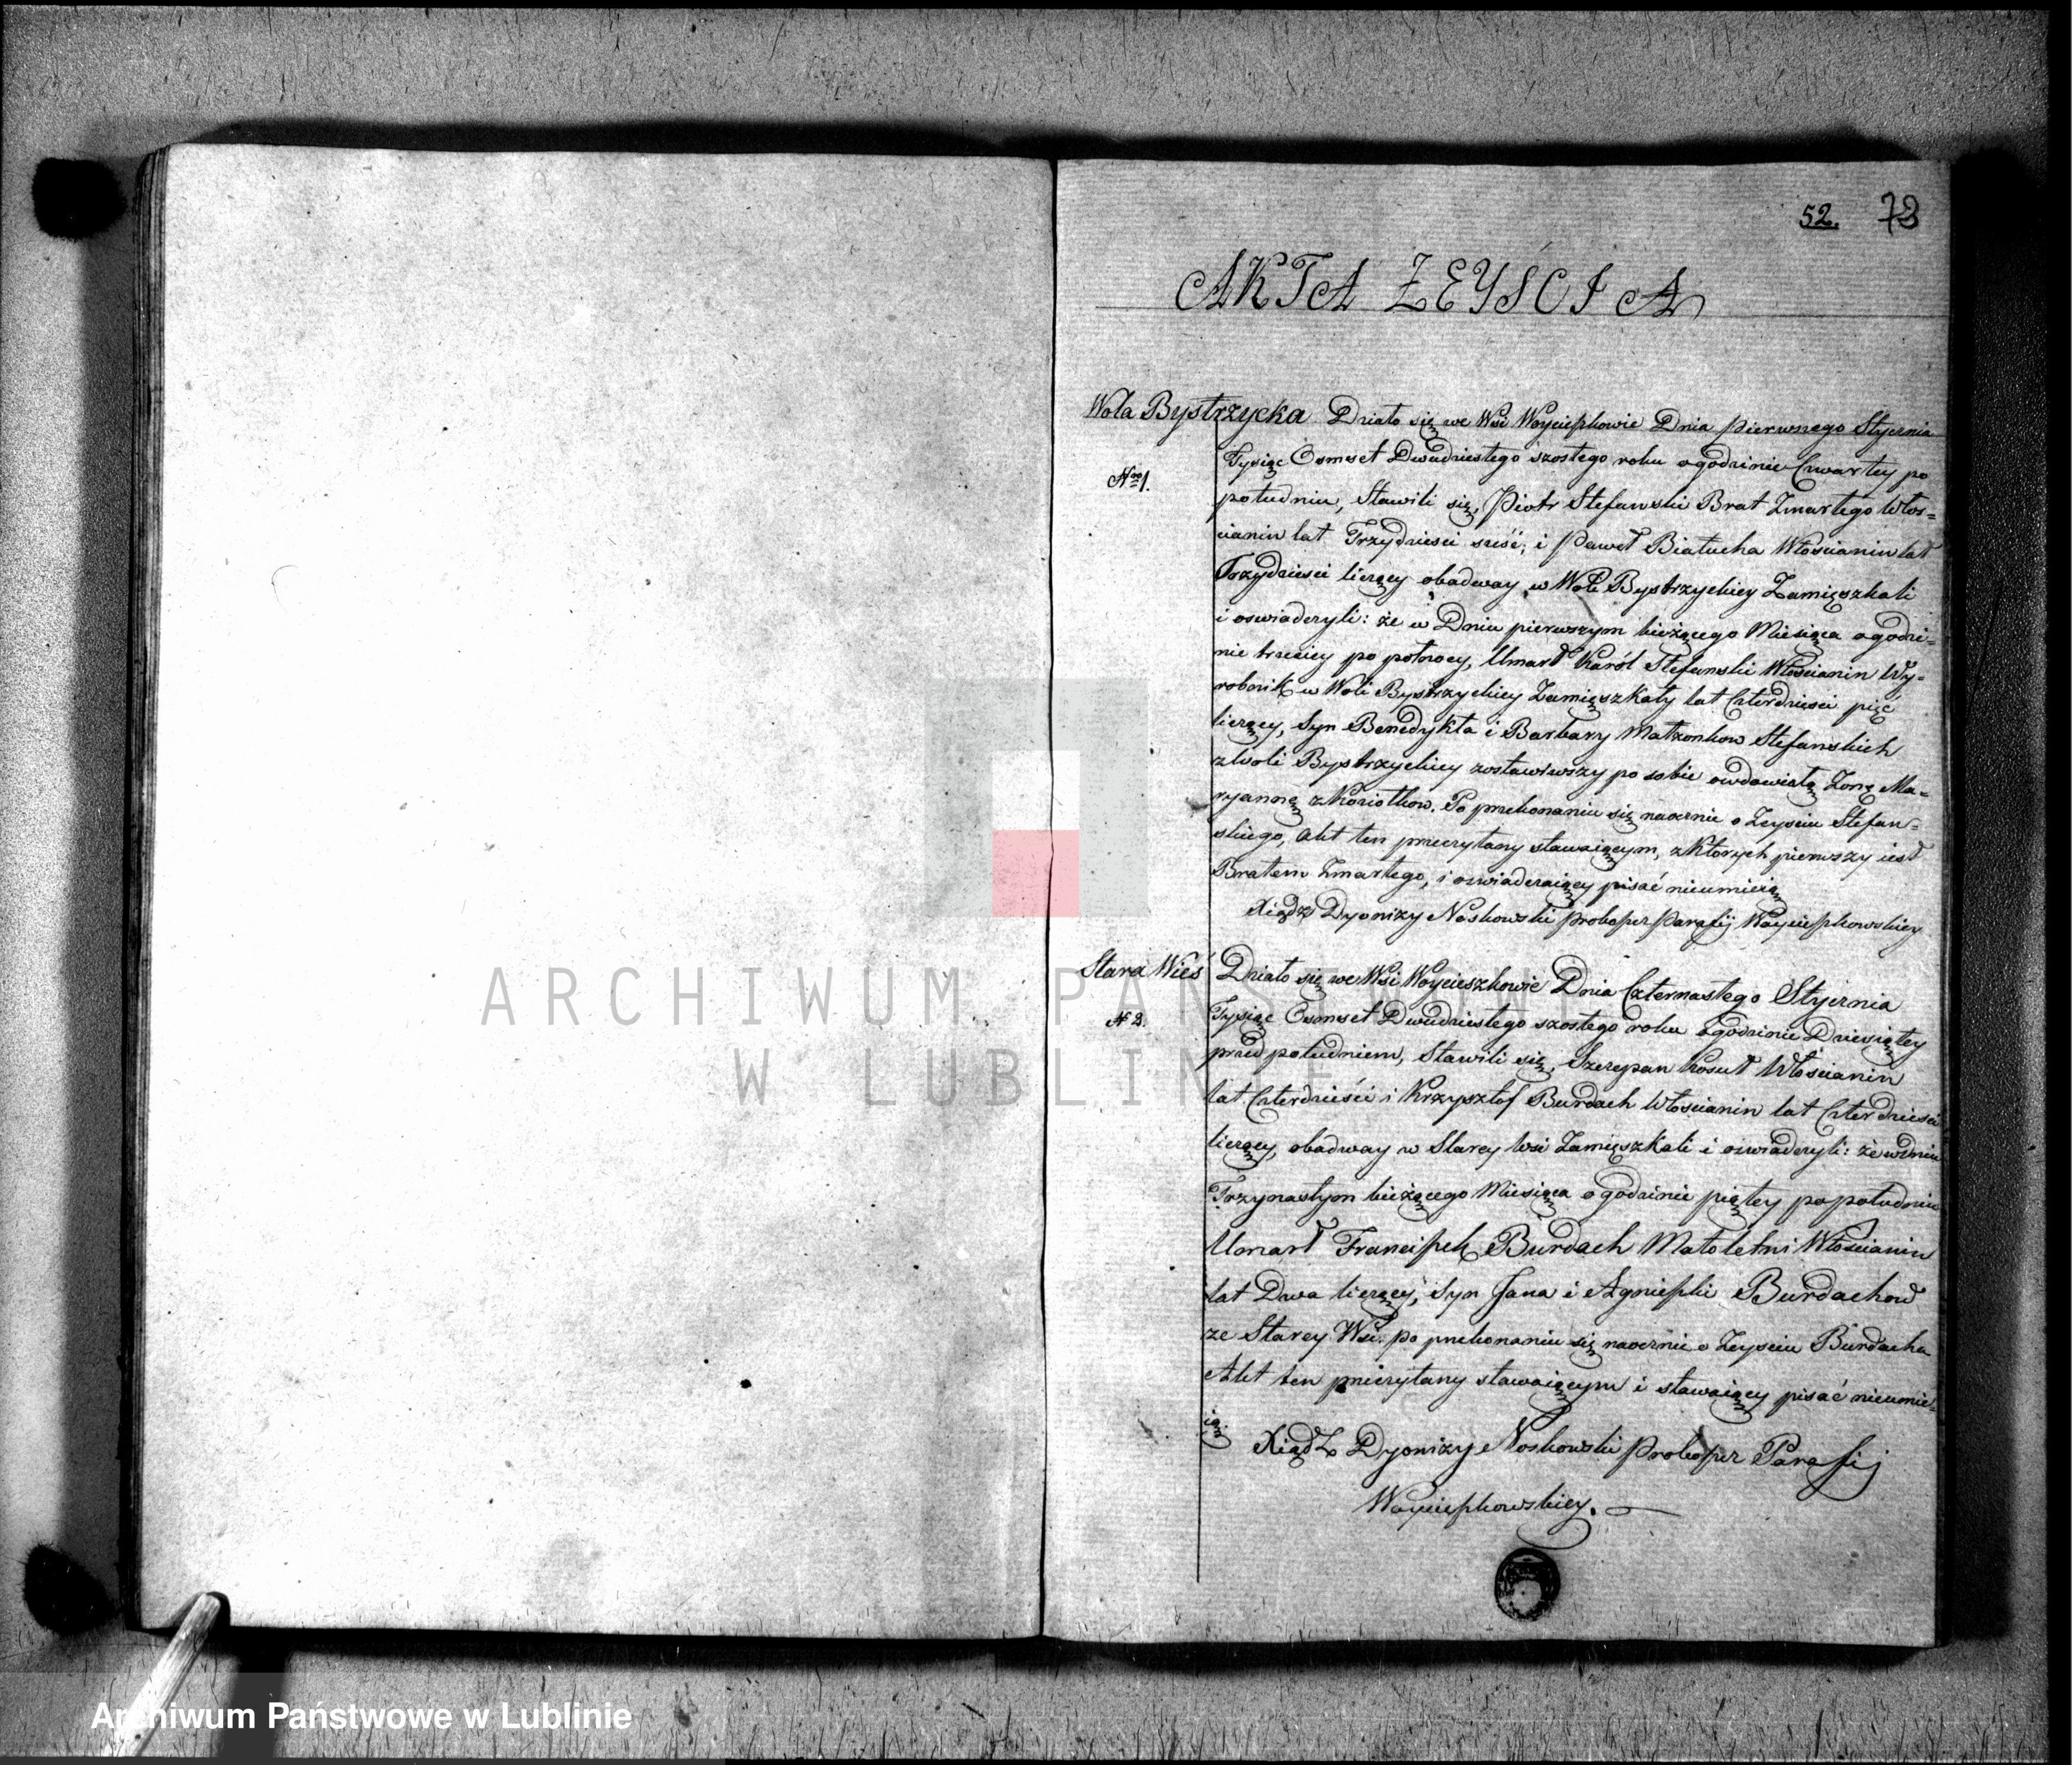 52. 73
AKTA ZEYSCIA
Wola Bystrzycka Działo się we Wsi Woycieszkowie Dnia Pierwszego Stycznia
Nro 1. Tysiąc Osmset Dwudziestego szostego roku o godzinie Czwartey po
południu, Stawili się, Piotr Stefanski Brat Zmarłego Włos=
cianin lat Trzydziesci sześć, i Paweł Białucha Włościanin lat
Trzydziesci liczący obadway w Woli Bystrzyckiey Zamięszkali
i oswiadczyli: że w Dniu pierwszym bieżącego Miesiąca o godzi=
nie trzeciey po połnocy, Umarł Karól Stefanski Włościanin Wy=
robnik w Woli Bystrzyckiey Zamięszkały lat Czterdziesci pięć
liczący, Syn Benedykta i Barbary Małzonkow Stefanskich
z Woli Bystrzyckiey zostawiwszy po sobie owdowiałą Zonę Ma=
ryannę z Koziołkow. Po przekonaniu się naocznie o Zeysciu Stefan=
skiego, Akt ten przeczytany stawaiącym, z których pierwszy iest
Bratem Zmarłego, i oswiadczaiący pisać nieumieią
Xiądz Dyonizy Noskowski Proboszcz Parafij Woycieszkowskiey
Stara Wieś Działo się we Wsi Woycieszkowie Dnia Czternastego Stycznia
N 2. Tysiąc Osmset Dwudziestego szostego roku o godzinie Dziesiątey
przed południem, Stawili się, Szczepan Kosut Włościanin
lat Czterdzieści i Krzysztof Burdach Włoscianin lat Czterdziesci
liczący, obadway w Starey Wsi Zamięszkali i oswiadczyli: że w dniu
Trzynastym bieżącego Miesiąca o godzinie piątey po południu
Umarł Franciszek Burdach Małoletni Włościanin
lat Dwa liczący, Syn Jana i Agnieszki Burdachow
ze Starey Wsi. po przekonaniu się naocznie o Zeysciu Burdacha
Akt ten przeczytany stawaiącym i stawaiący pisać nieumie=
ią.
Xiądz Dyonizy Noskowski Proboszcz Parafij
Woycieszkowskiey.
ARCHIWUM PAŃSTWOWE
W LUBLINIE
Archiwum Państwowe w Lublinie